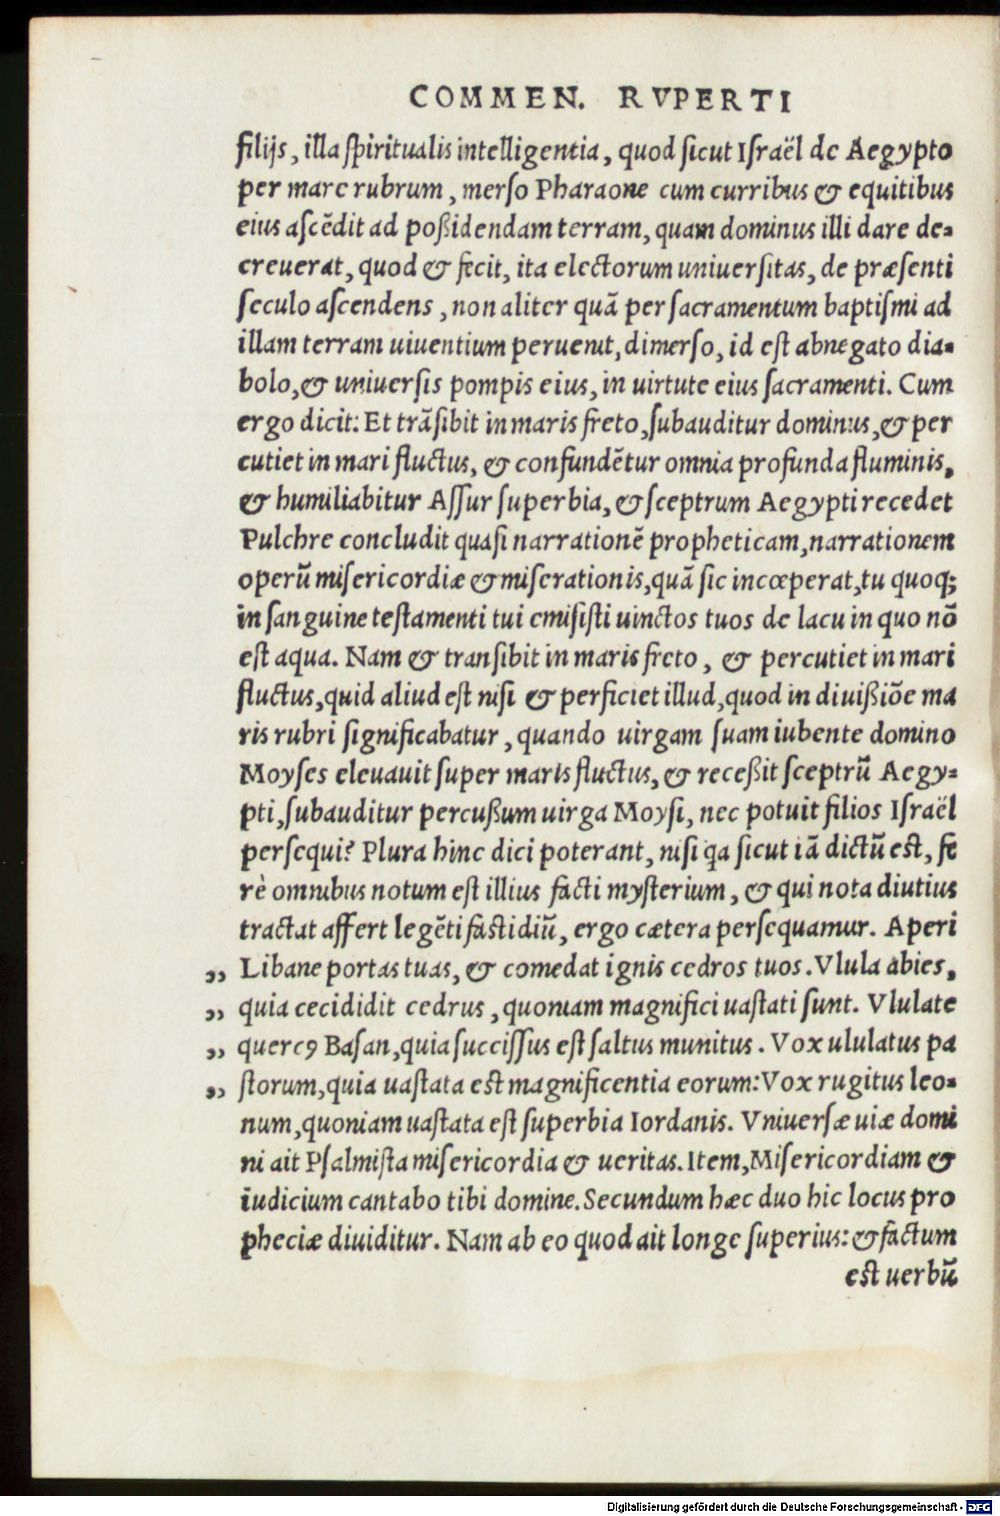 COMMEN. RVPERTI
filijs, illa spiritualis intelligentia, quod sicut Israël de Aegypto
per mare rubrum, merso Pharaone cum curribus & equitibus
eius ascēdit ad poßidendam terram, quam dominus illi dare de-
creuerat, quod & fecit, ita electorum uniuersitas, de præsenti
seculo ascendens, non aliter quā per sacramentum baptismi ad
illam terram uiuentium peruenit, dimerso, id est abnegato dia-
bolo, & uniuersis pompis eius, in uirtute eius sacramenti. Cum
ergo dicit: Et trāsibit in maris freto, subauditur dominus, & per
cutiet in mari fluctus, & confundētur omnia profunda fluminis,
& humiliabitur Assur superbia, & sceptrum Aegypti recedet
Pulchre concludit quasi narrationē propheticam, narrationem
operū misericordiæ & miserationis, quā sic incœperat, tu quoq;
in sanguine testamenti tui emisisti uinctos tuos de lacu in quo nō
est aqua. Nam & transibit in maris freto, & percutiet in mari
fluctus, quid aliud est nisi & perficiet illud, quod in diuißiōe ma
ris rubri significabatur, quando uirgam suam iubente domino
Moyses eleuauit super maris fluctus, & receßit sceptrū Aegy-
pti, subauditur percußum uirga Moysi, nec potuit filios Israël
persequi? Plura hinc dici poterant, nisi qa sicut iā dictū est, fe
rè omnibus notum est illius facti mysterium, & qui nota diutius
tractat affert legēti fastidiū, ergo cætera persequamur. Aperi
„ Libane portas tuas, & comedat ignis cedros tuos. Vlula abies,
„ quia cecididit cedrus, quoniam magnifici uastati sunt. Vlulate
„ quercꝰ Basan, quia succissus est saltus munitus. Vox ululatus pa
„ storum, quia uastata est magnificentia eorum: Vox rugitus leo-
num, quoniam uastata est superbia Iordanis. Vniuersæ uiæ domi
ni ait Psalmista misericordia & ueritas. Item, Misericordiam &
iudicium cantabo tibi domine. Secundum hæc duo hic locus pro
pheciæ diuiditur. Nam ab eo quod ait longe superius: & factum
est uerbū
Digitalisierung gefördert durch die Deutsche Forschungsgemeinschaft - DFG